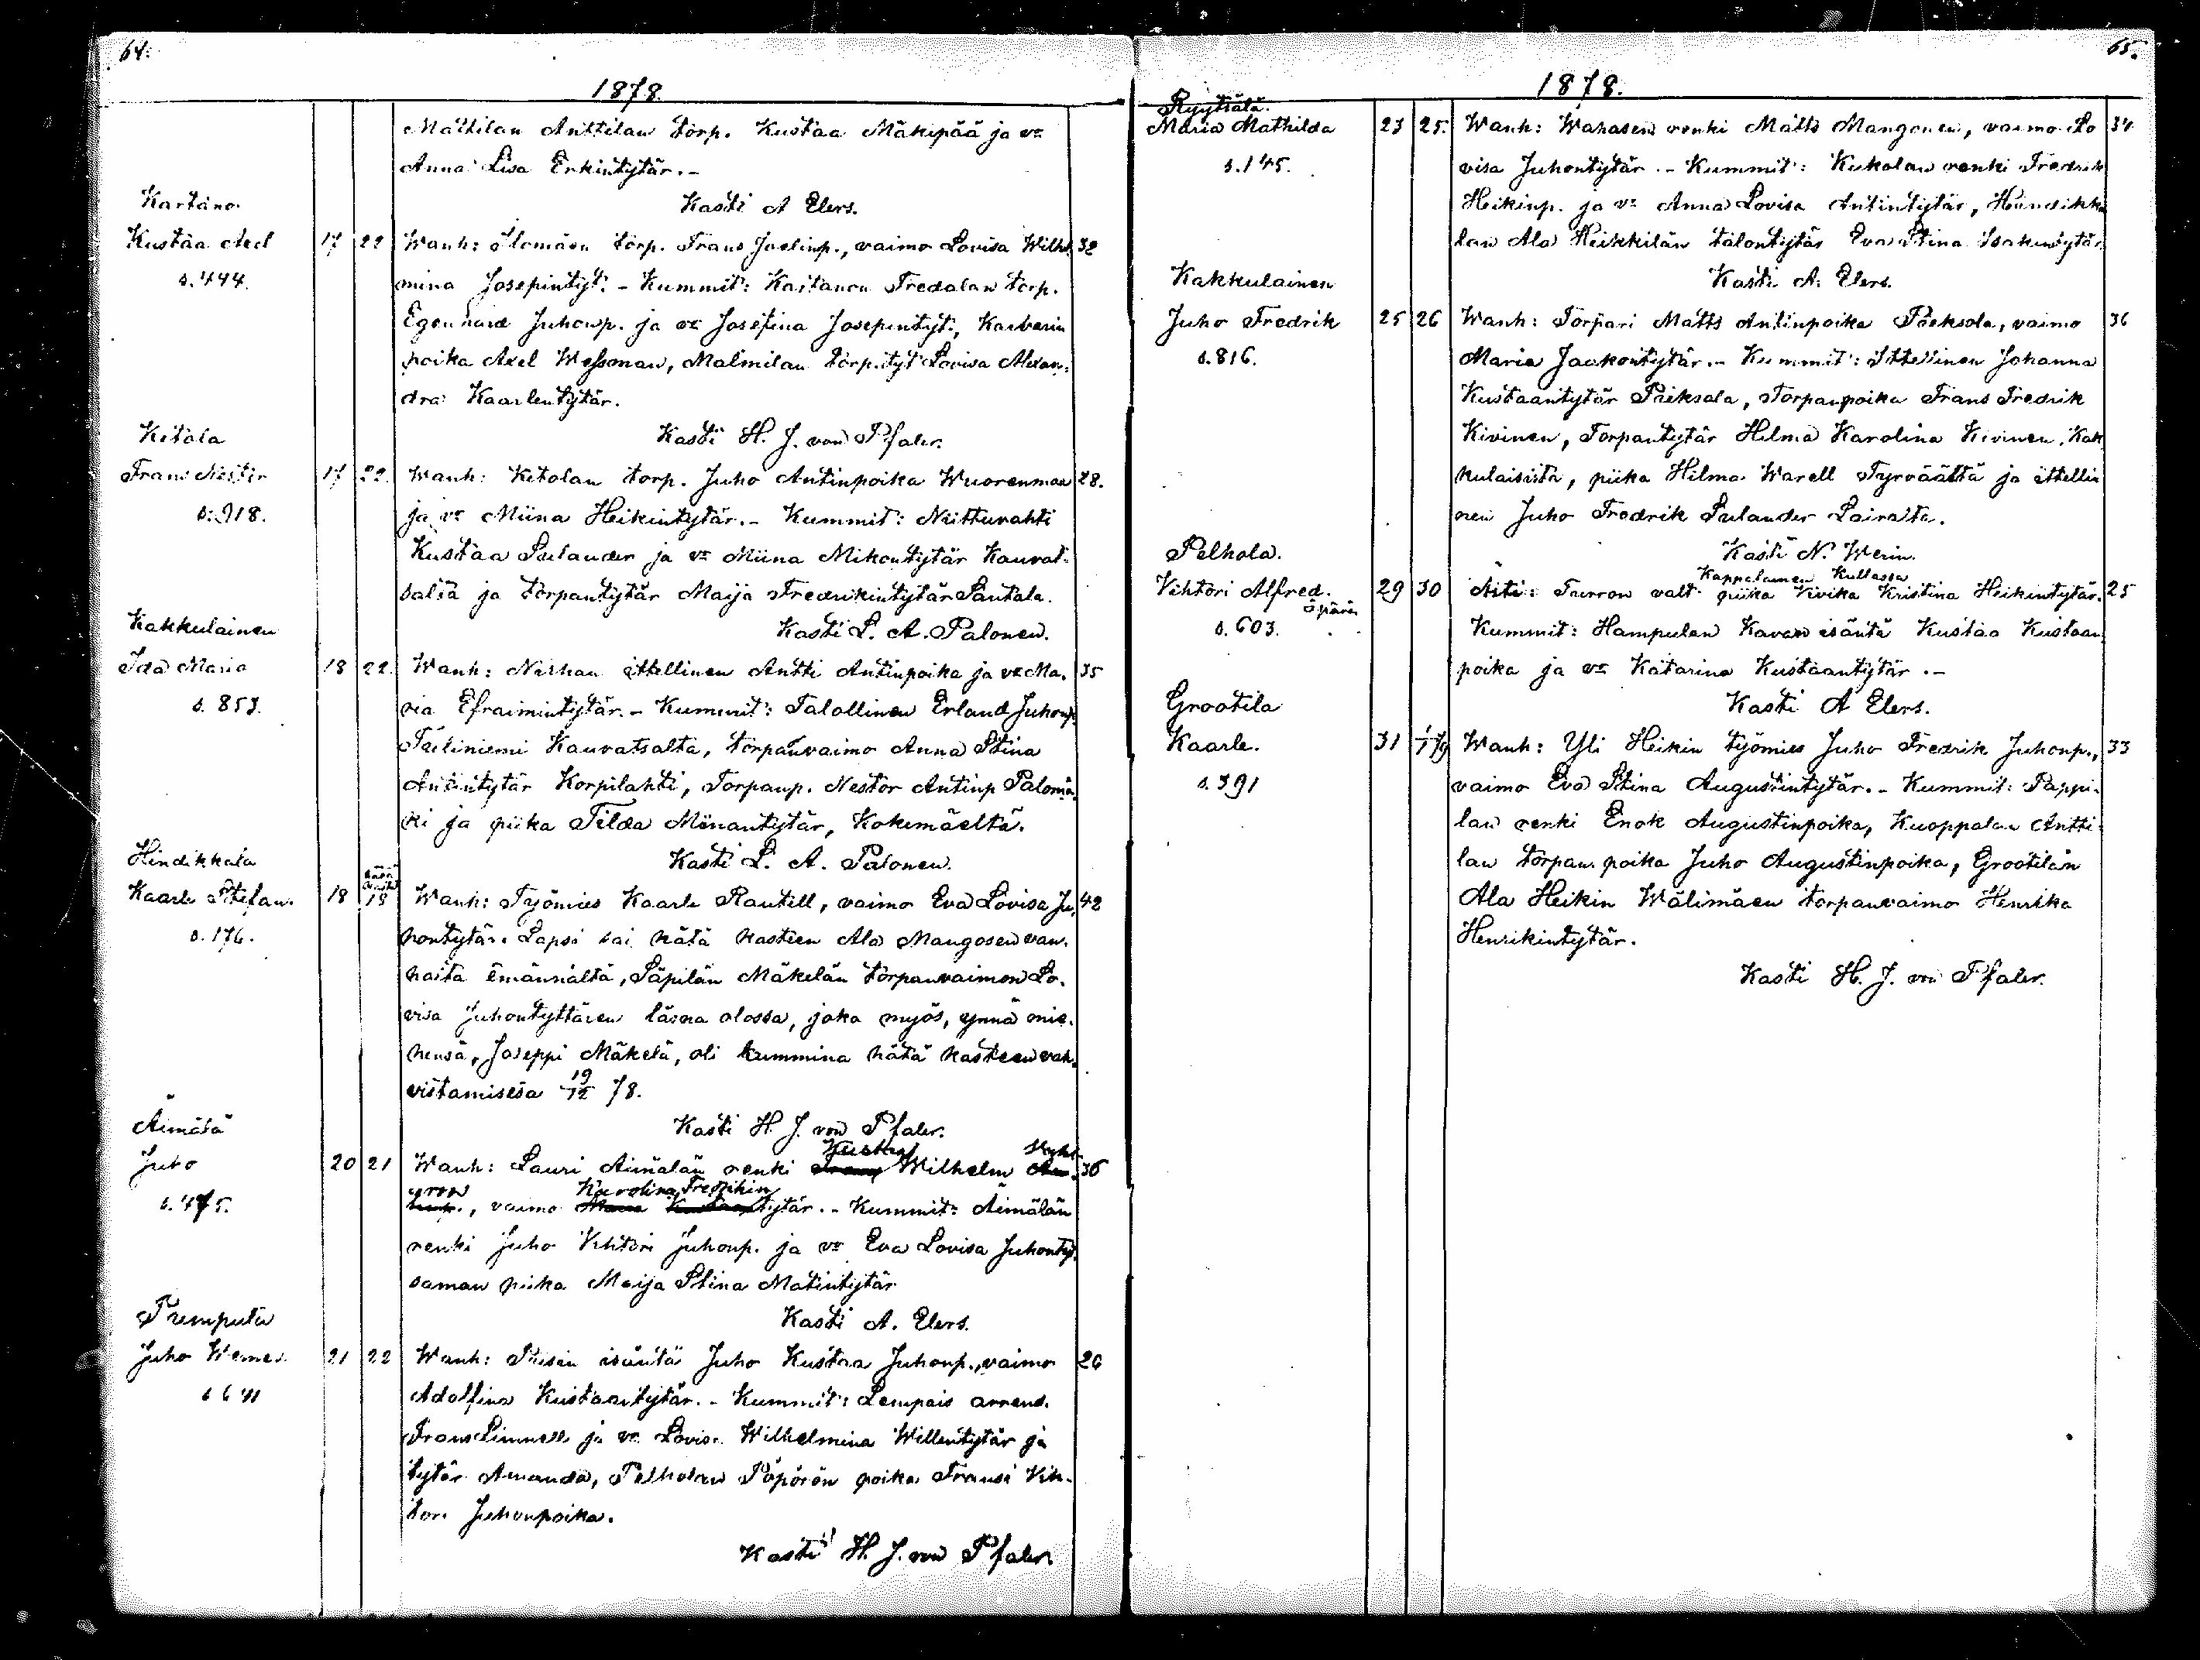 64.
1878.
Mattilan Anttilan torp. Kustaa Mäkipää ja vo
Anna Lisa Erkintytär.-
Kasti A Elers.
Kartano.
Kustaa Axel 17 22 Wanh: torp. Frans Joelinp., vaimo Lovisa Wilhel 32
s. 444. mina Josepintyt. - Kummit: Kartanon Fredalan torp.
Juhonp. ja vo Josefina Josepintyt.,
poika Axel Wessman, Malmilan torp.tyt Lovisa Alexan-
dra Kaarlentytär.
Kasti H. J. von Pfaler.
Ketola
Frans Nestor 17 22. Wanh: Ketolan torp. Juho Antinpoika Wuorenmaa 28.
s. 918. ja vo Miina Heikintytär.- Kummit: Niittuvahti
Kustaa Sulander ja vo Miina Mikontytär Kauvat-
salta ja torpantytär Maija Fredrikintytär Santala.
Kasti L. A. Palonen.
Kakkulainen
Ida Maria 18 22. Wanh: ittellinen Antti Antinpoika ja vo Ma- 35
s. 853. ria Efraimintytär.- Kummit: Talollinen Erland Juhonp
Kauvatsalta, torpanvaimo Anna Stina
Antintytär Korpilahti, Torpanp. Nestor Antinp Palomä-
ki ja piika Tilda Kokemäeltä.
Kasti L. A. Palonen.
Hindikkala
Kaarle Stefan. 18 18 Wanh: Työmies Kaarle Rantell, vaimo Eva Lovisa Ju- 42
s. 176. hontytär. Lapsi sai hätä kasteen Ala Mangosen van-
halta emännältä, Säpilän Mäkelän torpanvaimon Lo-
visa Juhontyttären läsnä olossa, joka myös, ynnä mie-
hensä, Joseppi Mäkelä, oli kummina hätä kasteen vah-
vistamisessa 19/12 78.
Kasti H. J. von Pfaler.
Äimälä Kustaa
Juho 20 21 Wanh: Lauri Äimälän renki Wilhelm 36
s. 475. Karolina Fredrikin
vaimo tytär.- Kummit: Äimälän
renki Juho Vihtori Juhonp. ja vo Eva Lovisa Juhontyt.
saman piika Maija Stina Matintytär
Kasti A. Elers.
Juho Werner 21 22 Wanh: isäntä Juho Kustaa Juhonp., vaimo 26
s 641 Adolfina Kustaantytär. - Kummit: Lempais arrend.
Frans ja vo Lovisa Wilhelmina Willentytär ja
tytär Amanda, Pelholan poika Fransi Vih-
tori Juhonpoika.
Kasti H. J. von Pfaler.
65.
1878.
Ryytsälä.
Maria Mathilda 23 25. Wanh: Wahasen renki Matts Mangonen, vaimo Lo 34
s. 145. visa Juhontytär.- Kummit: Kukolan renki Fredrik
Heikinp. ja vo Anna Lovisa Antintytär, Hindikka
lan Ala Heikkilän talontytär Eva Stina Isakintytär.
Kasti A. Elers.
Kakkulainen
Juho Fredrik 25 26 Wanh: Torpari Matts Antinpoika Päeksola, vaimo 36
s. 816. Maria Jaakontytär.- Kummit: Ittellinen Johanna
Kustaantytär Torpanpoika Frans Fredrik
Kivinen, Torpantytär Hilma Karolina Kivinen, Kak
kulaisista, piika Hilma Warell Tyrväältä ja ittelli
nen Juho Fredrik Sulander Lairalta.
Kasti N. Werin.
Pelhola. Kappelainen Kullassa
Vihtori Alfred. 29 30 Äiti: valt. piika Kristina Heikintytär. 25
äpärä
s. 603. Kummit: Hampulan Kavan isäntä Kustaa Kustaan
poika ja vo Katarina Kustaantytär.-
Kasti A Elers.
Grootila
Kaarle. 31 1/1 79 Wanh: Yli Heikin työmies Juho Fredrik Juhonp., 33
s. 391 vaimo Eva Stina Augustintytär.- Kummit: Pappi-
lan renki Enok Augustinpoika, Kuoppalan Antti-
lan torpan poika Juho Augustinpoika, Grootilan
Ala Heikin Wälimäen torpanvaimo Henrika
Henrikintytär.
Kasti H. J. von Pfaler.